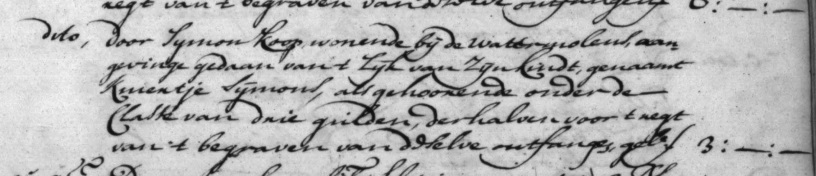 regt van 't begraven van d'selve ontfangen 6:—:—
dito, door Symon Koop, wonende bij de Wattermolens, aan
gevinge gedaan van 't Lijk van Zijn kindt, genaamt
Knientje Sijmons, als gehoorende onder de
Classe van drie gulden, derhalven voor 't regt
van 't begraven van d'selve ontfangen 3:—:—